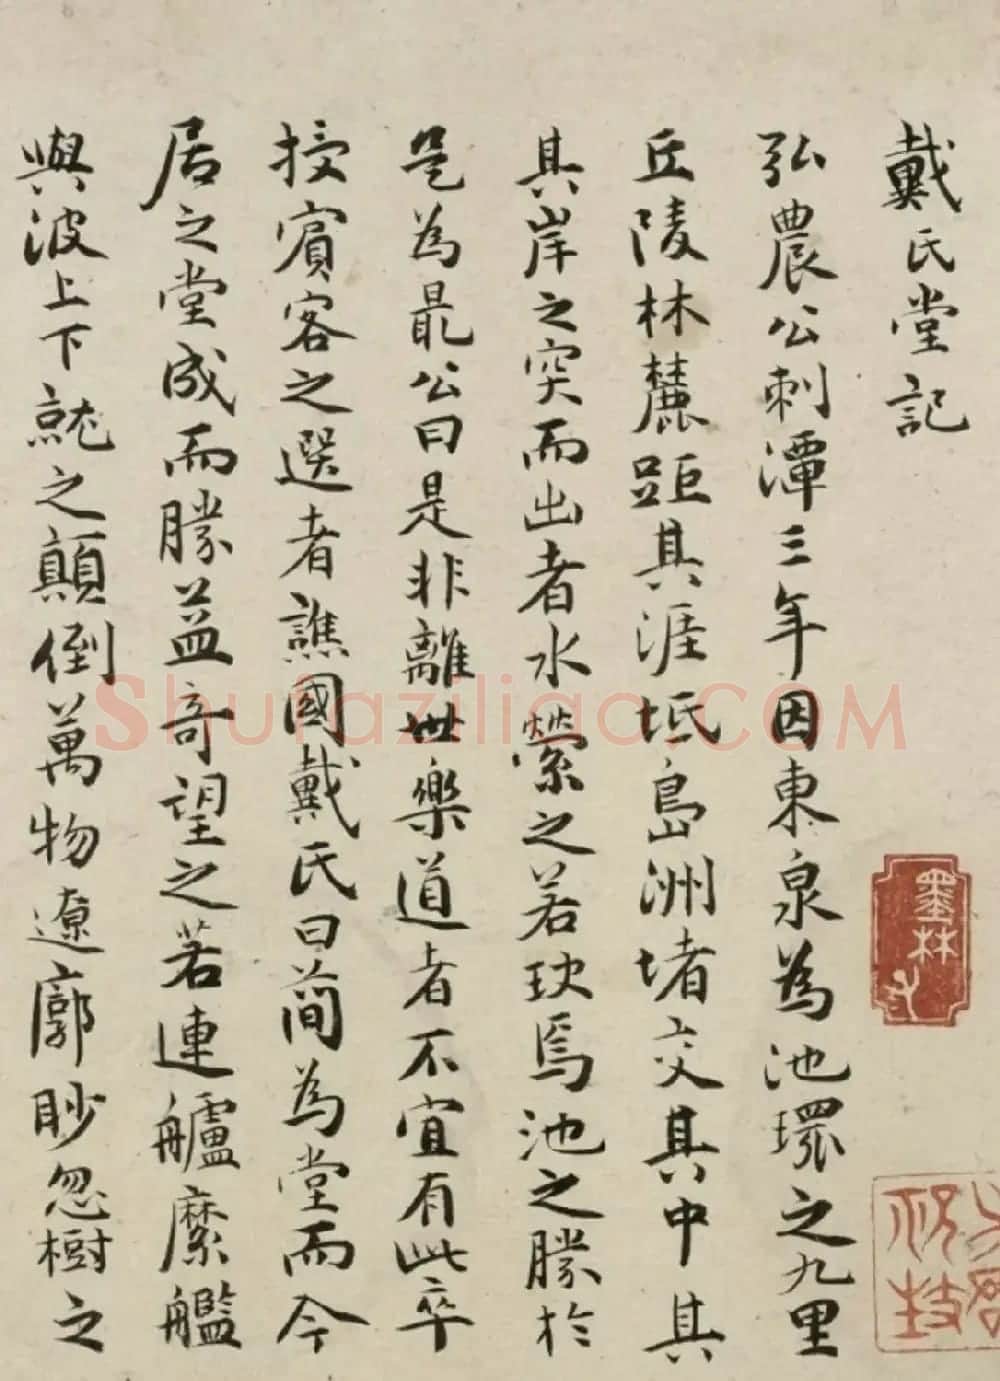 戴氏堂記
弘農公刺潭三年因東泉為池環之九里
丘陵林麓距其涯坻島洲堵交其中其
其岸之突而出者水縈之若玦焉池之勝於
是為最公曰是非離世樂道者不宜有此卒
授賓客之選者譙國戴氏曰簡為堂而今
居之堂成而勝益奇望之若連艫縻艦
與波上下就之顛倒萬物遼廓眇忽樹之
墨林
ShufaziliaO.COM